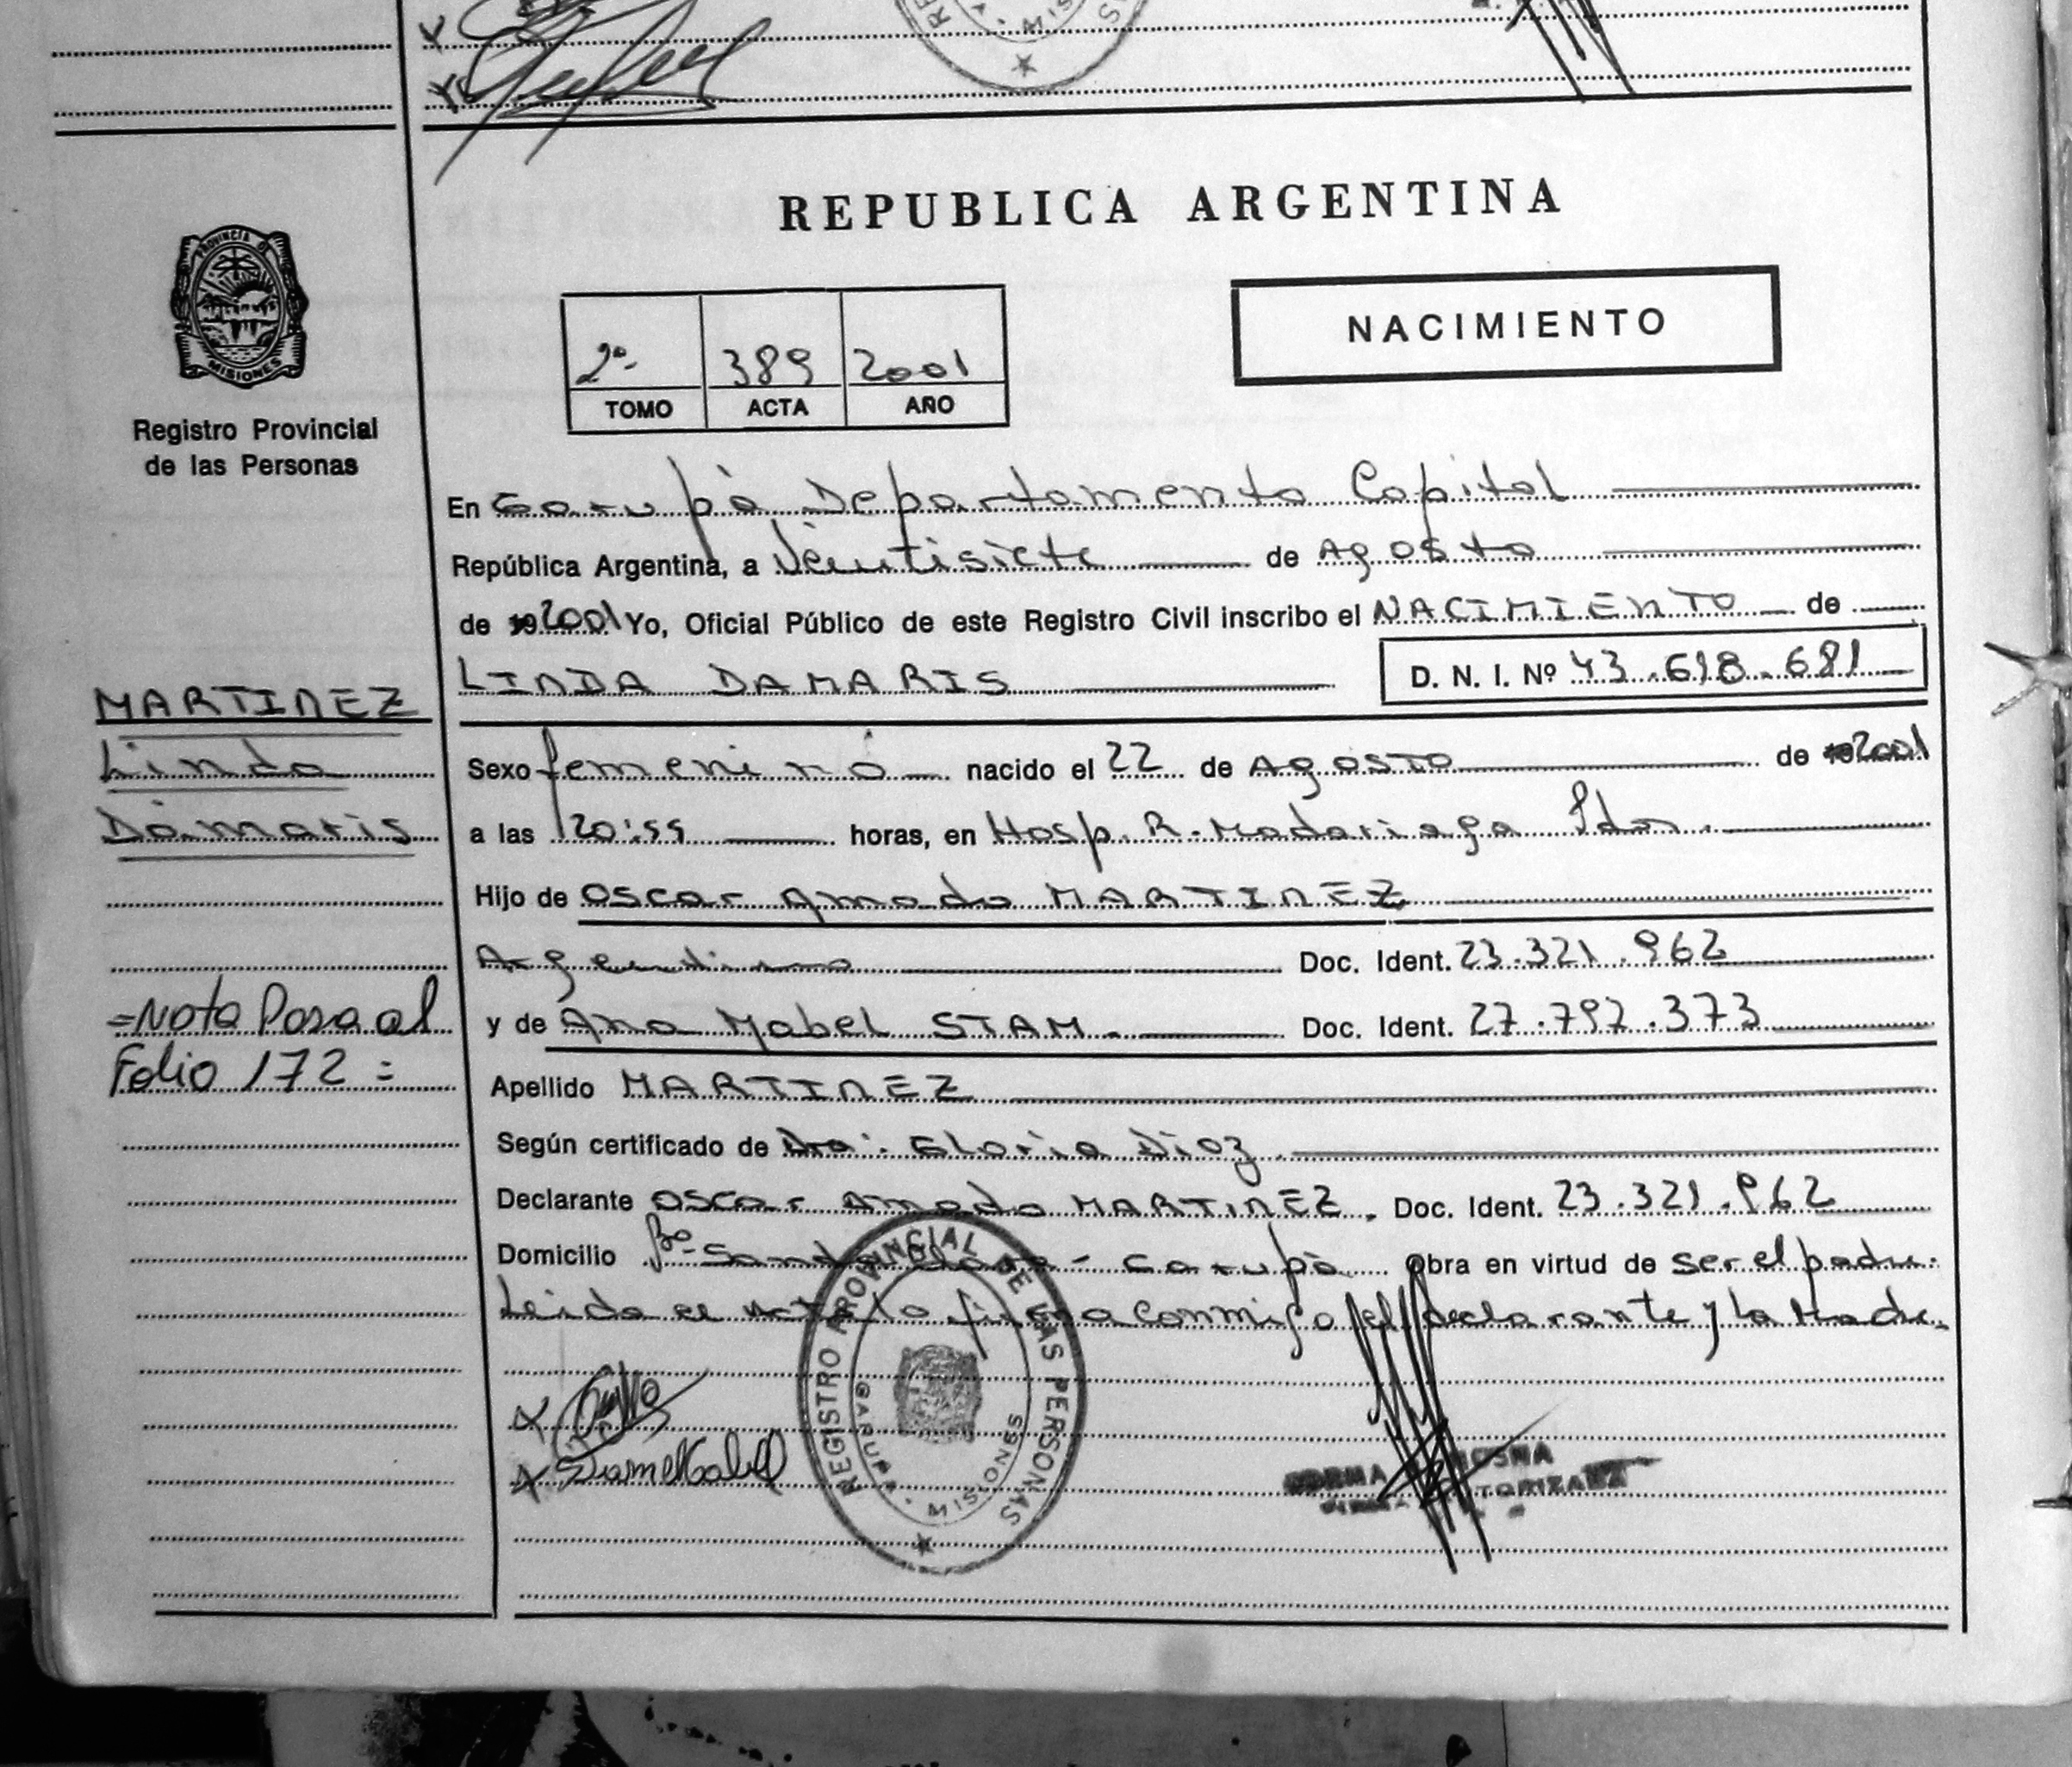 REPUBLICA ARGENTINA
NACIMIENTO
2º 389 2001
TOMO ACTA AÑO
PROVINCIA DE
MISIONES
Registro Provincial
de las Personas
En Garupá Departamento Capital
República Argentina, a Veintisiete de Agosto
de 19 2001 Yo, Oficial Público de este Registro Civil inscribo el NACIMIENTO de
LINDA DAMARIS D. N. I. Nº 43.618.681
MARTINEZ
Linda
Damaris
Sexo femenino nacido el 22 de Agosto de 19 2001
a las 20:55 horas, en Hosp. R. Madariaga Pdas.
Hijo de Oscar Amado MARTINEZ
Argentino Doc. Ident. 23.321.962
y de Ana Mabel STAM. Doc. Ident. 27.797.373
=Nota Pasa al
Folio 172=
Apellido MARTINEZ
Según certificado de Dra: Gloria Diaz.
Declarante Oscar Amado MARTINEZ. Doc. Ident. 23.321.962
Domicilio Bº Santa - Garupá Obra en virtud de ser el padre.
Leida el acta la firma conmigo el declarante y la Madre.
REGISTRO PROVINCIAL DE LAS PERSONAS
GARUPA - MISIONES